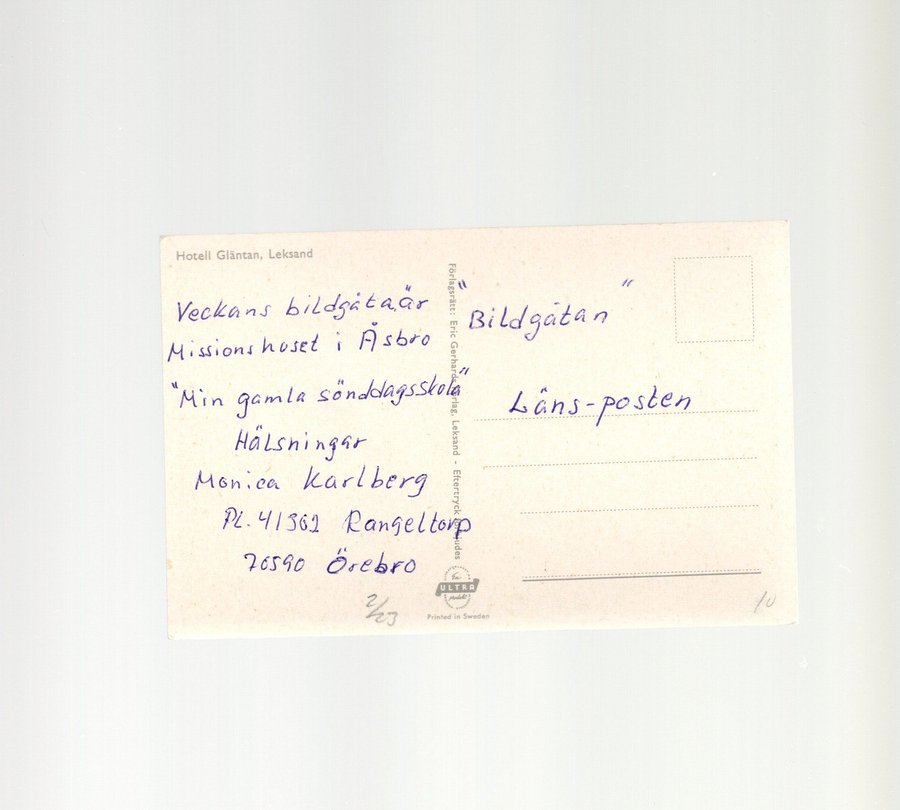 Hotell Gläntan, Leksand
Veckans bildgåta, är
Missionshuset i Åsbro
"Min gamla sönddagsskola"
Hälsningar
Monica Karlberg
PL. 41362 Rangeltorp
70590 Örebro
2/23
Förlagsrätt: Eric Gerhards förlag, Leksand - Eftertryck förbjudes
ULTRA
Printed in Sweden
"Bildgåtan"
Läns-posten